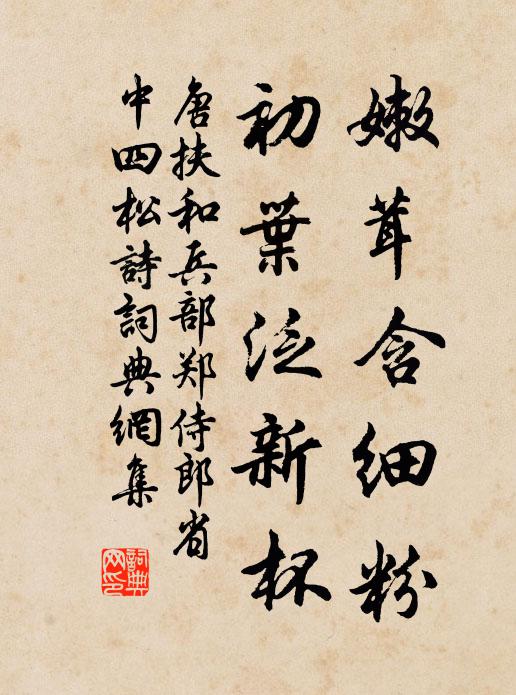 嫩茸含细粉
初葉泛新杯
唐扶和兵部郑侍郎省
中四松詩詞典網集
詞典
网印